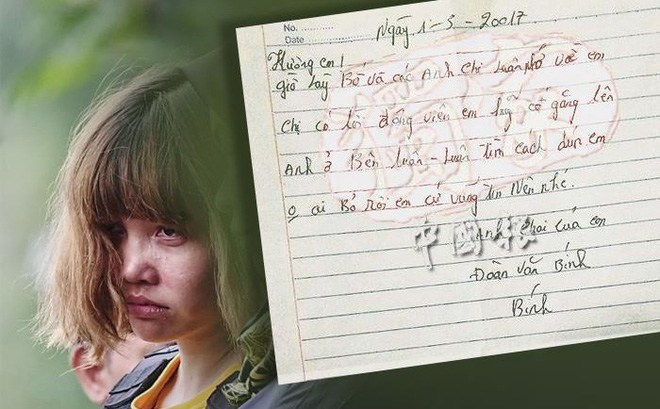 No.
Date
Ngày 1-3-2017
Hương em!
giờ này Bố và các Anh chị luôn nhớ về em
chị có lời động viên em hãy cố gắng lên
Anh ở Bên luôn-luôn tìm cách đưa em
ai Bỏ rơi em cứ vững tin lên nhé.
Anh trai của em
中國報
Đoàn Văn Bính
Bính